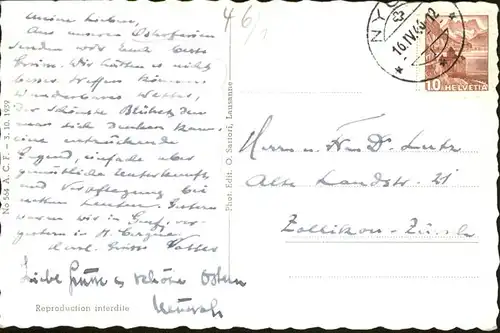 Meine Lieben,
Aus unseren Osterferien
senden wir Euch beste
Grüsse. Wir hätten es nicht
besser treffen können.
Wunderbares Wetter,
der schönste Blühet den
man sich denken kann,
eine entzückende
Gegend, einfache aber
gemütliche Unterkunft
und Verpflegung bei
netten Leuten. Gestern
waren wir in Genf,
gestern in
Herzl. Grüsse
Liebe Grüsse & schöne Ostern
46/1
No 584 A. C. F. – 3. 10. 1939
Reproduction interdite
Phot. Edit. O. Sartori, Lausanne
NYON
16.IV.46.12
10 HELVETIA
Herrn u. Frau Dr. Lutz
Alte Landstr. 21
Zollikon-Zürich